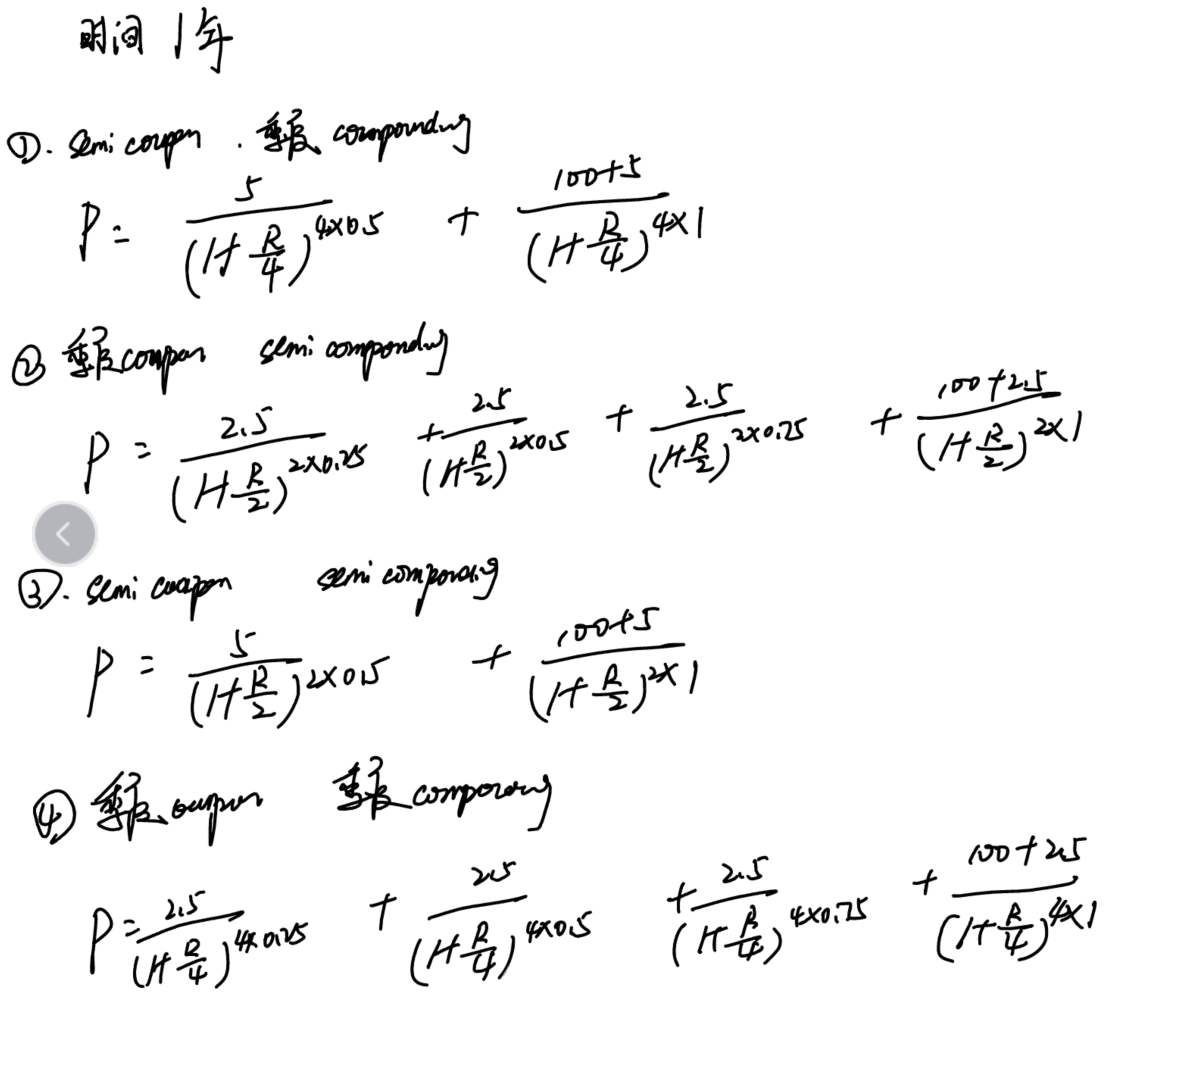 时间 1年
①. semi coupon . 季度 compounding
P = 5/(1+R/4)^(4×0.5) + (100+5)/(1+R/4)^(4×1)
② 季度 coupon semi compounding
P = 2.5/(1+R/2)^(2×0.25) + 2.5/(1+R/2)^(2×0.5) + 2.5/(1+R/2)^(2×0.75) + (100+2.5)/(1+R/2)^(2×1)
③. semi coupon semi compounding
P = 5/(1+R/2)^(2×0.5) + (100+5)/(1+R/2)^(2×1)
④ 季度 coupon 季度 compounding
P = 2.5/(1+R/4)^(4×0.25) + 2.5/(1+R/4)^(4×0.5) + 2.5/(1+R/4)^(4×0.75) + (100+2.5)/(1+R/4)^(4×1)